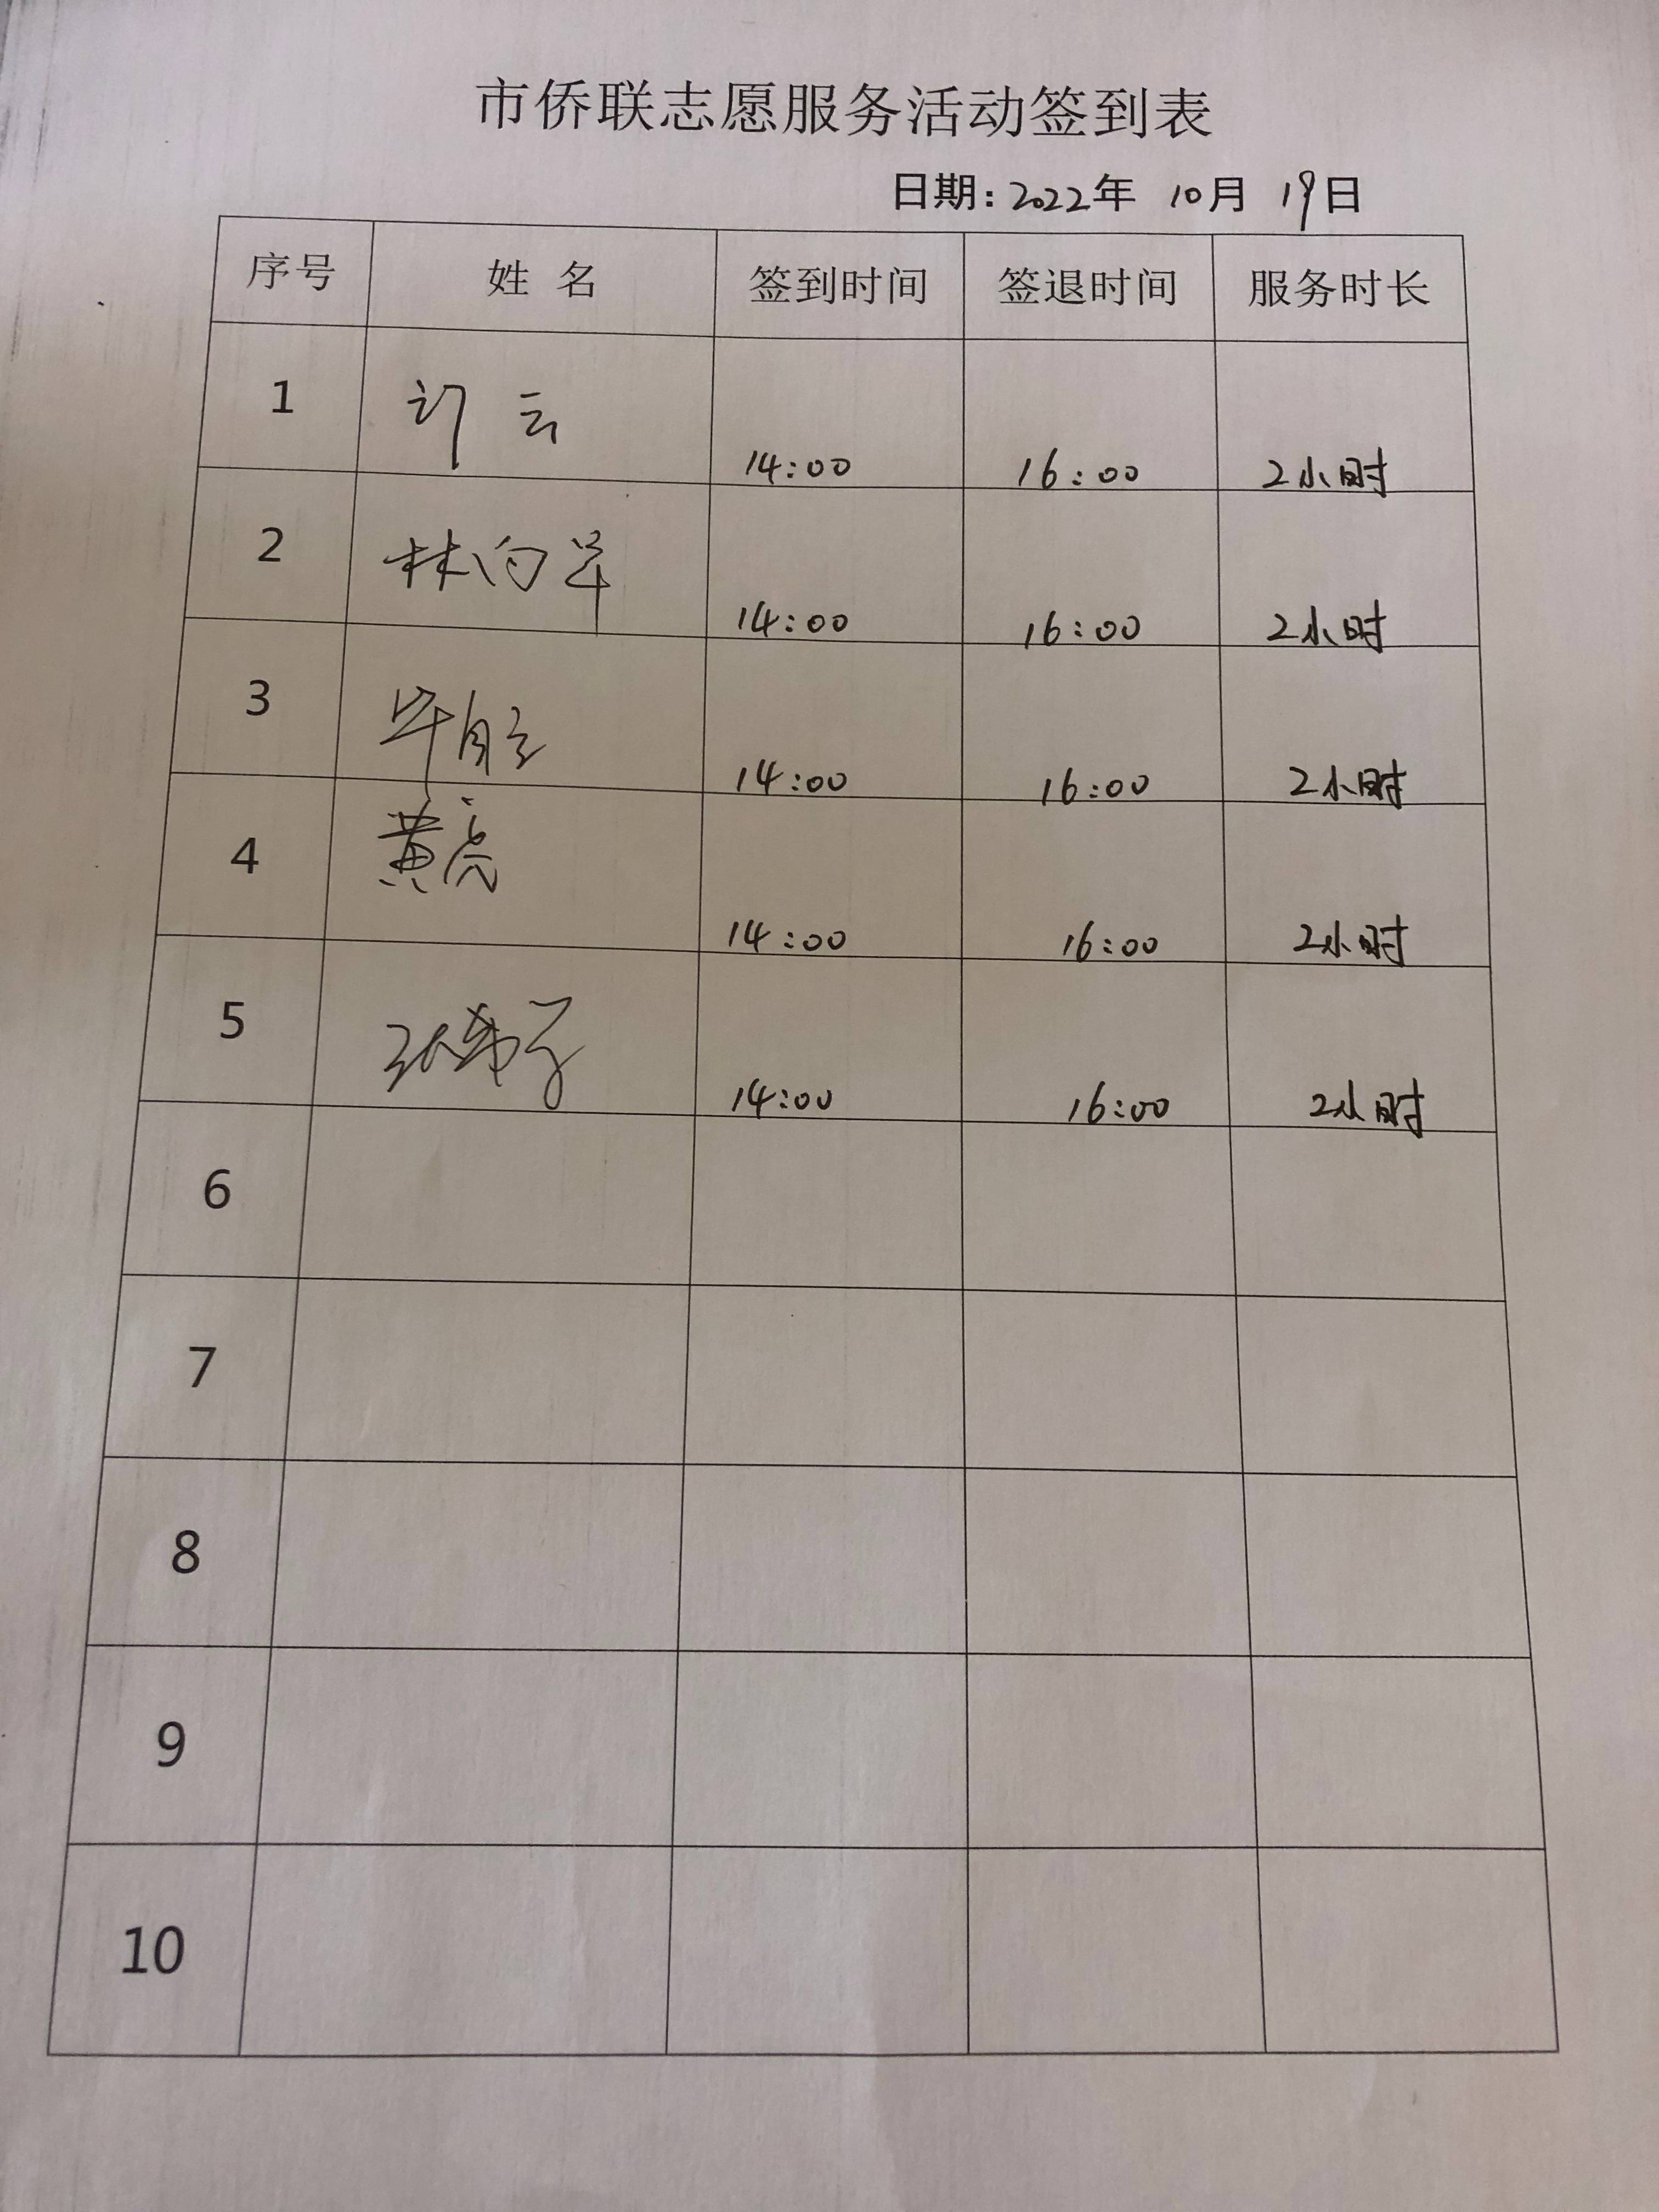 市侨联志愿服务活动签到表
日期: 2022年 10月 19日
序号 姓 名 签到时间 签退时间 服务时长
1 14:00 16:00 2小时
2 林向 14:00 16:00 2小时
3 14:00 16:00 2小时
4 黄亮 14:00 16:00 2小时
5 张 14:00 16:00 2小时
6
7
8
9
10